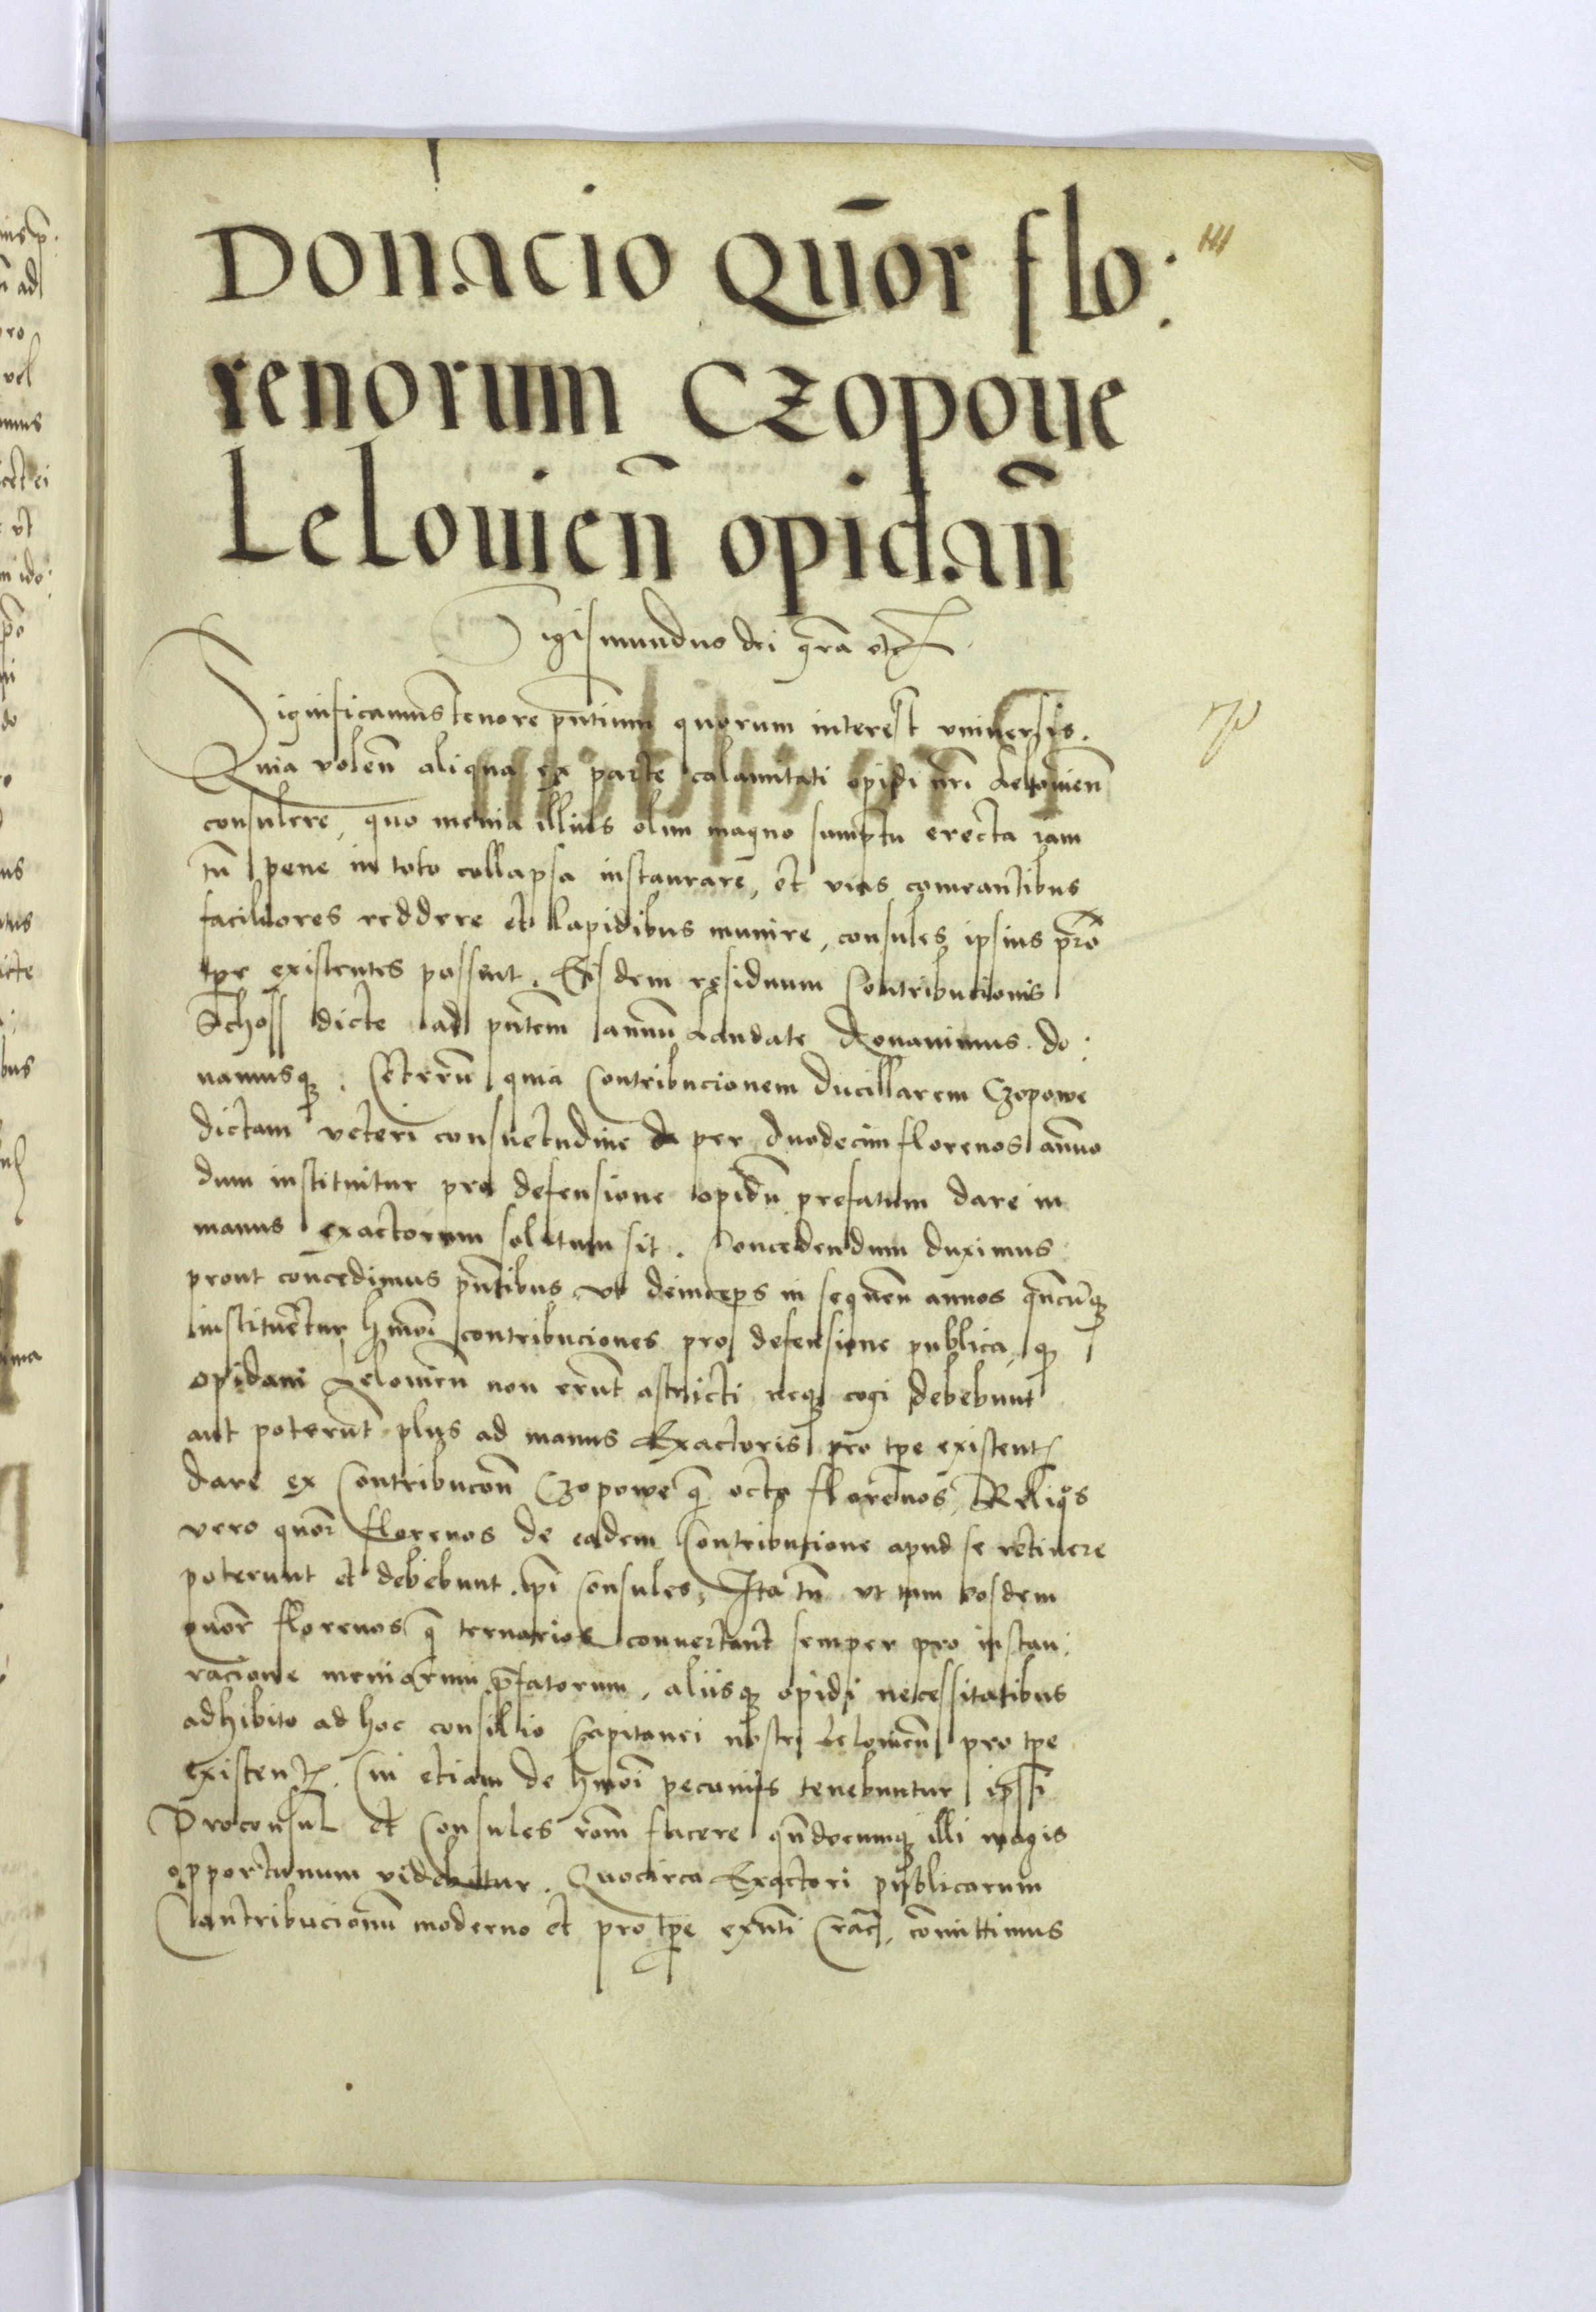 Donacio quōr flo:
renorum czopoue
Leloviēn opidañ
Sigismundus dei grā etc
Significamus tenore pntium quorum interest vniuersis.
Quia volen̄ aliqua ex parte calamitati opidi nri Leloviēn
consulere, quo menia illius olim magno sumptu erecta iam
tn̄ pene in toto collapsa instaurare, et vias comeantibus
faciliores reddere et lapidibus munire, consules ipsius pro
tpe existentes possent. Eisdem residuum Contribucionis
Schoss dicte ad pn̄tem annū Laudate donauimus. do:
namusq. Ceterū quia Contribucionem ducillarem Czopowe
dictam veteri consuetudine per duodecim florenos annuo
dum instituitur pro defensione opidū prefatum dare in
manus exactorum solitum sit. Concedendum duximus
prout concedimus pn̄tibus vt deinceps in sequen̄ annos qn̄cūq
instituētur hmōi contribuciones pro defensione publica, q
opidani Leloviēn non erūt astricti neq cogi debebunt
aut poterūt plus ad manus Exactoris pro tpe existent
dare ex Contribucōn Czopowe q̄ octo florenos, Reliqos
vero quōr florenos de eadem Contribucione apud se retinere
poterunt et debebunt ipi Consules, Ita tn̄ vt tam eosdem
quōr florenos q̄ ternarios conuertant semper pro instau:
racione meniorum p̄fatorum, aliisq opidi necessitatibus
adhibito ad hoc consilio Capitanei nostri Leloviēn pro tpe
existent. Cui etiam de hmōi pecuniis tenebuntur ipsi
Proconsul et Consules rōm facere qn̄documq illi magis
opportunum videbitur. Quocirca Exactori publicarum
Contribucionū moderno et pro tpe exn̄ti comittimus